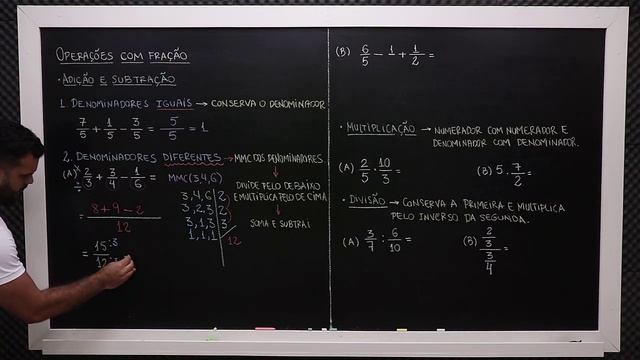 OPERAÇÕES COM FRAÇÃO
• ADIÇÃO E SUBTRAÇÃO
1. DENOMINADORES IGUAIS → CONSERVA O DENOMINADOR
7/5 + 1/5 − 3/5 = 5/5 = 1
2. DENOMINADORES DIFERENTES → MMC DOS DENOMINADORES
(A) 2/3 + 3/4 − 1/6 =
MMC(3,4,6)
3,4,6 | 2
3,2,3 | 2
3,1,3 | 3
1,1,1 | 12
8+9−2/12
= 15:3/12:3
DIVIDE PELO DE BAIXO
E MULTIPLICA PELO DE CIMA
SOMA E SUBTRAI
(B) 6/5 − 1 + 1/2 =
• MULTIPLICAÇÃO → NUMERADOR COM NUMERADOR E
DENOMINADOR COM DENOMINADOR.
(A) 2/5 · 10/3 =
(B) 5 · 7/2 =
• DIVISÃO → CONSERVA A PRIMEIRA E MULTIPLICA
PELO INVERSO DA SEGUNDA.
(A) 3/7 : 6/10 =
(B) 2/3 / 3/4 =